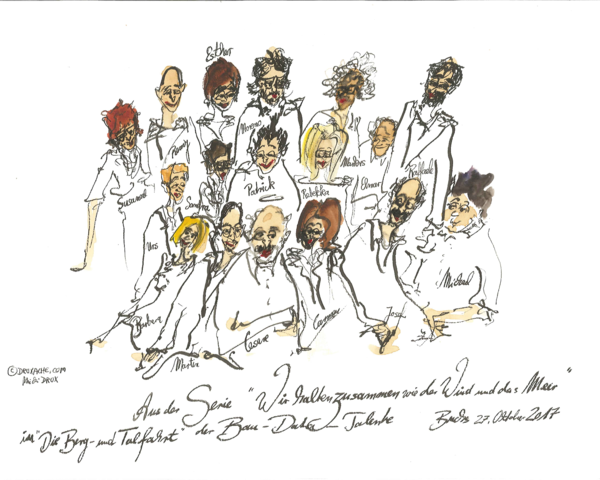 Esther
Susanne
Patrick
Rebekka
Elmar
Raffaele
Urs
Sandra
Barbara
Martin
Cesare
Carmen
Josef
Michael
©DROXACHE.COM
Aus der Serie "Wir halten zusammen wie der Wind und das Meer"
im "Die Berg- und Talfahrt" der Bau- Talente Buchs 27. Oktober 2017